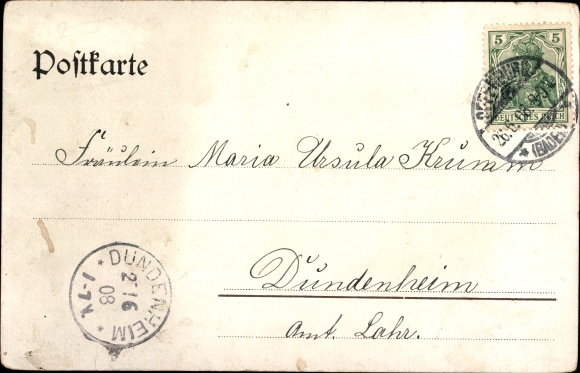 Postkarte
5 5
DEUTSCHES REICH
OFFENBURG
(BADEN)
Fräulein Maria Ursula Krumm
Dundenheim
Amt. Lahr.
* DUNDENHEIM *
08
1-7 V.